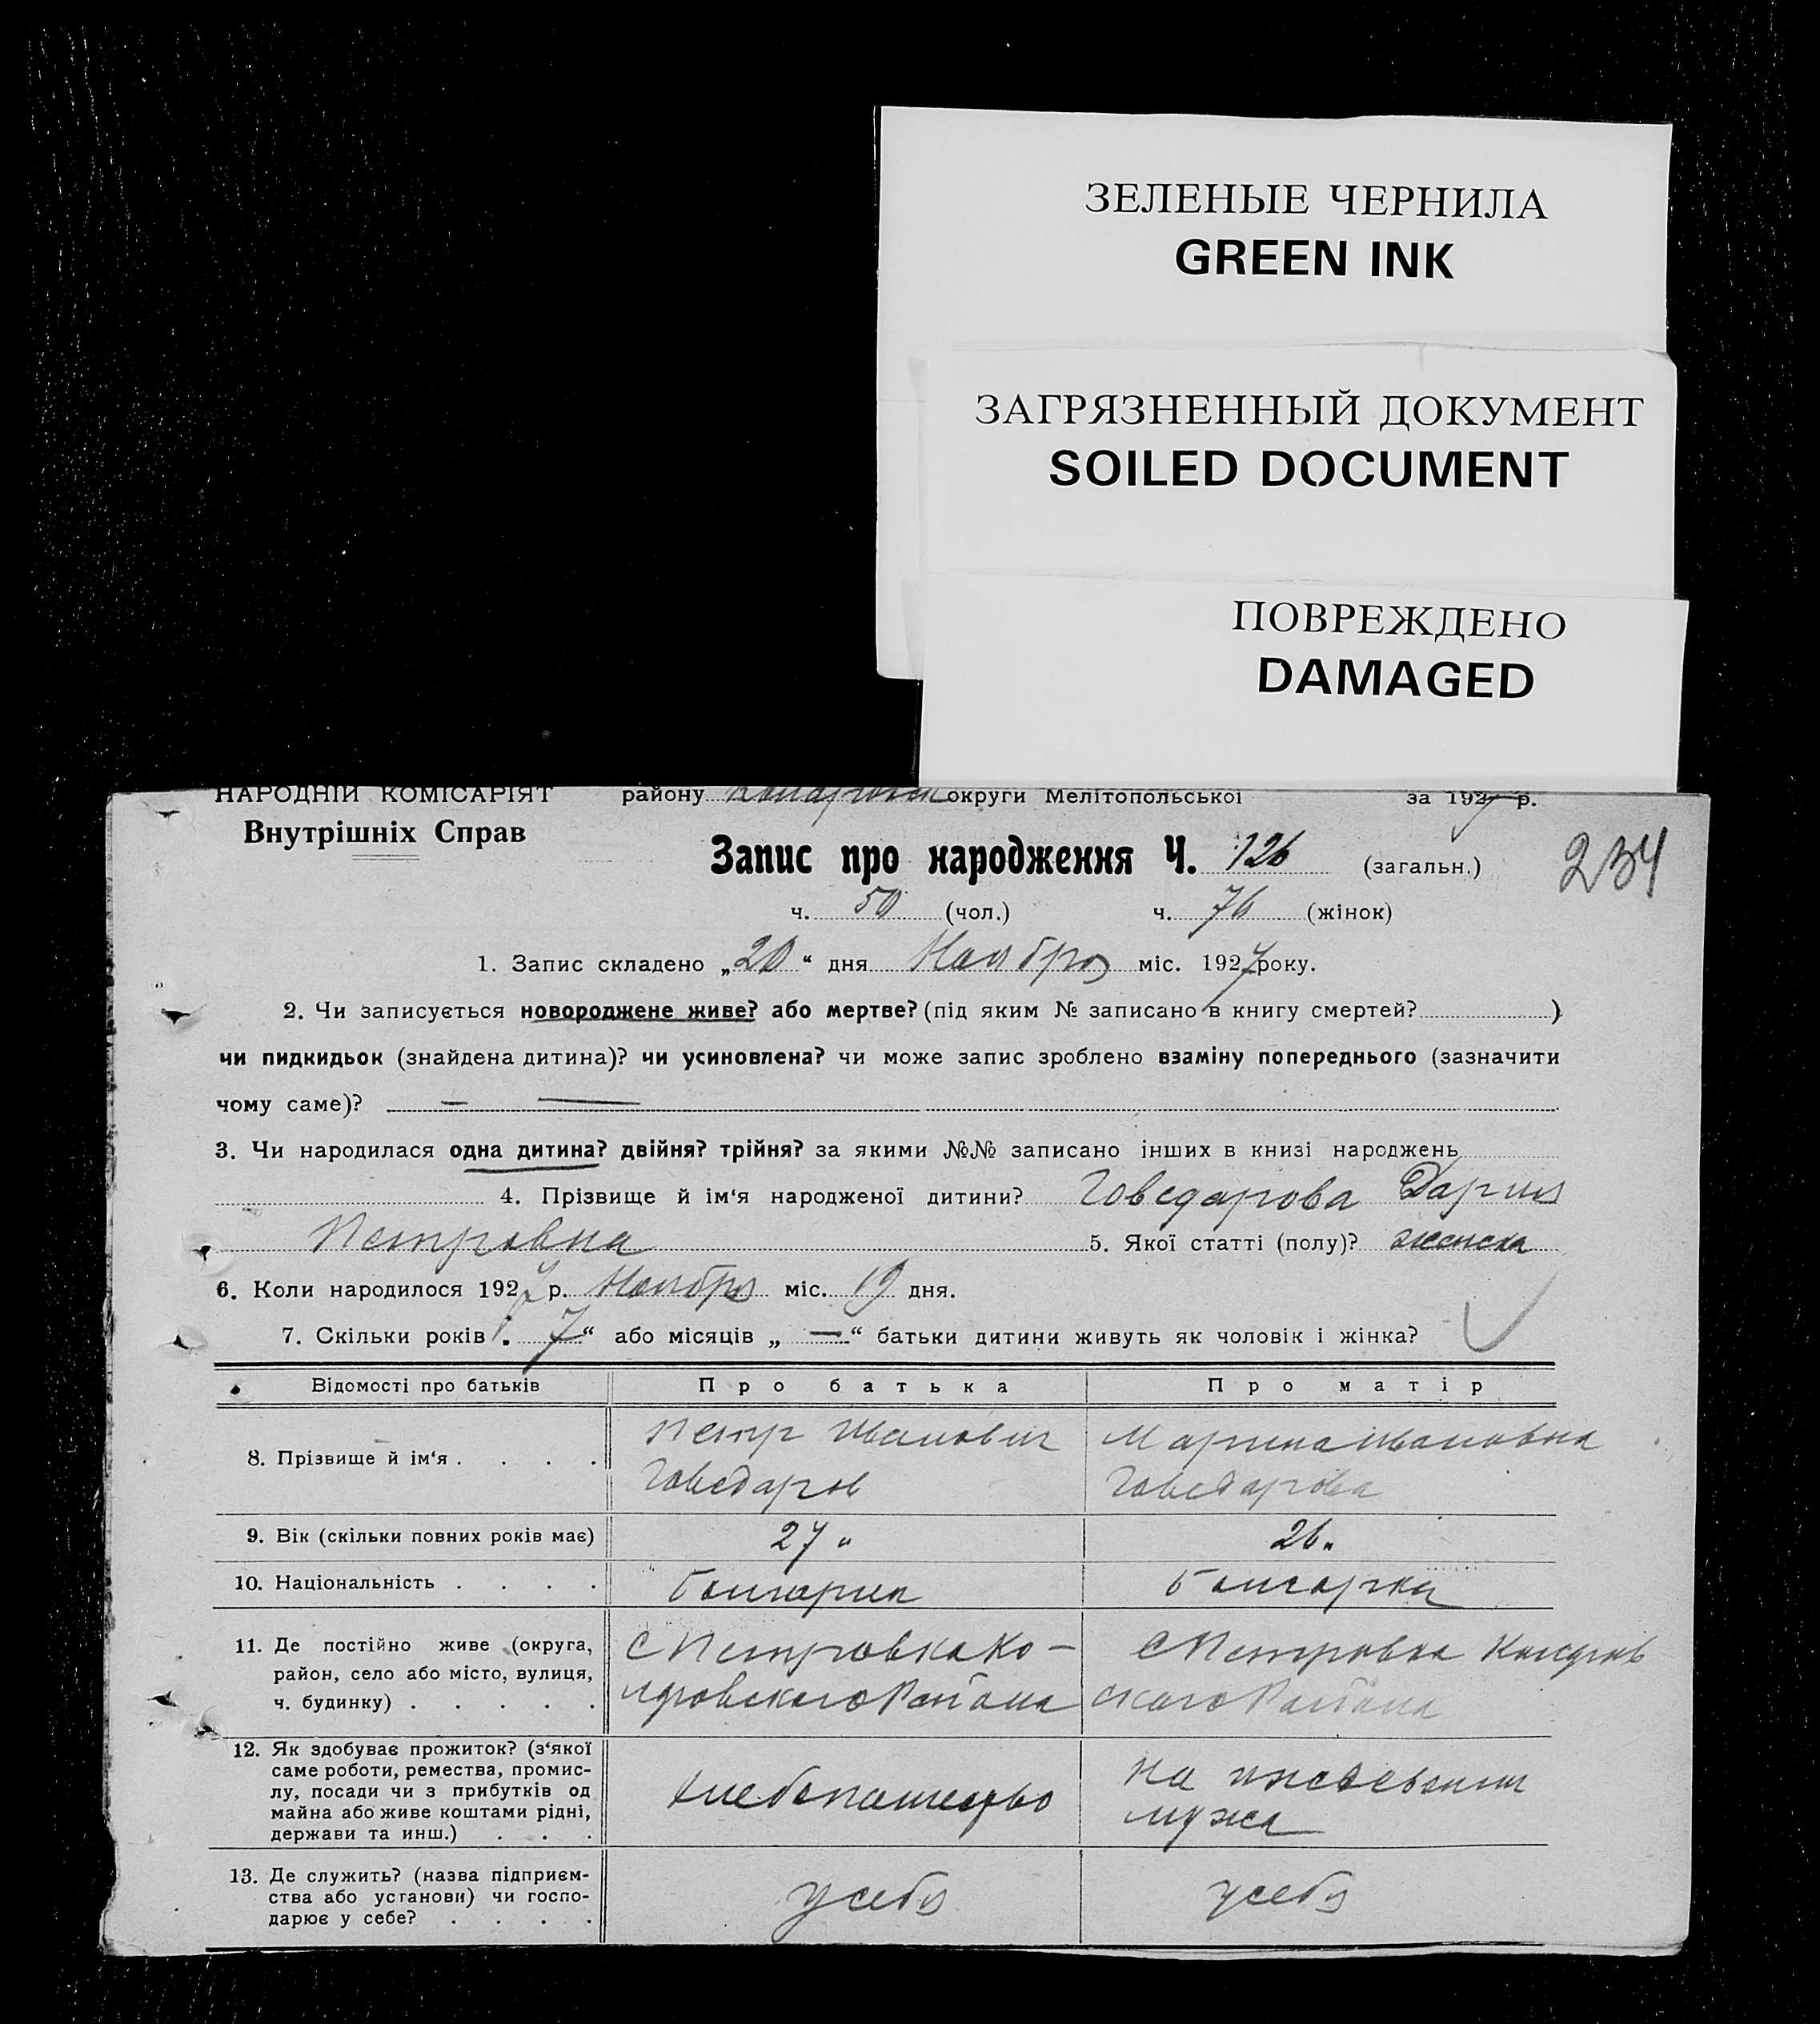 ЗЕЛЕНЫЕ ЧЕРНИЛА
GREEN INK
ЗАГРЯЗНЕННЫЙ ДОКУМЕНТ
SOILED DOCUMENT
ПОВРЕЖДЕНО
DAMAGED
НАРОДНІЙ КОМІСАРІЯТ району округи Мелітопольської за 1927 р.
Внутрішніх Справ
Запис про народження Ч. 126 (загальн.) 234
ч. 50 (чол.) ч. 76 (жінок)
1. Запис складено „20“ дня Ноября міс. 1927 року.
2. Чи записується новороджене живе? або мертве? (під яким № записано в книгу смертей? )
чи пидкидьок (знайдена дитина)? чи усиновлена? чи може запис зроблено взаміну попереднього (зазначити
чому саме)? — —
3. Чи народилася одна дитина? двійня? трійня? за якими №№ записано інших в книзі народжень
4. Прізвище й ім‘я народженої дитини? Говедарова Дария
Петровна 5. Якої статті (полу)? женска
6. Коли народилося 1927 р. Ноября міс. 19 дня.
7. Скільки років „ 7 “ або місяців „ — “ батьки дитини живуть як чоловік і жінка?
Відомості про батьків Про батька Про матір
8. Прізвище й ім‘я . . . . Петр Иванович Говедаров Марина Ивановна Говедарова
9. Вік (скільки повних років має) 27 „ 26 „
10. Національність . . . . болгарин болгарка
11. Де постійно живе (округа, район, село або місто, вулиця, ч. будинку) . . . . . С Петровка Коларовского Района С Петровка Коларовского Района
12. Як здобуває прожиток? (з‘якої саме роботи, ремества, промислу, посади чи з прибутків од майна або живе коштами рідні, держави та инш.) . . . хлебопашество на иждевении мужа
13. Де служить? (назва підприємства або установи) чи господарює у себе? . . . . у себя у себя